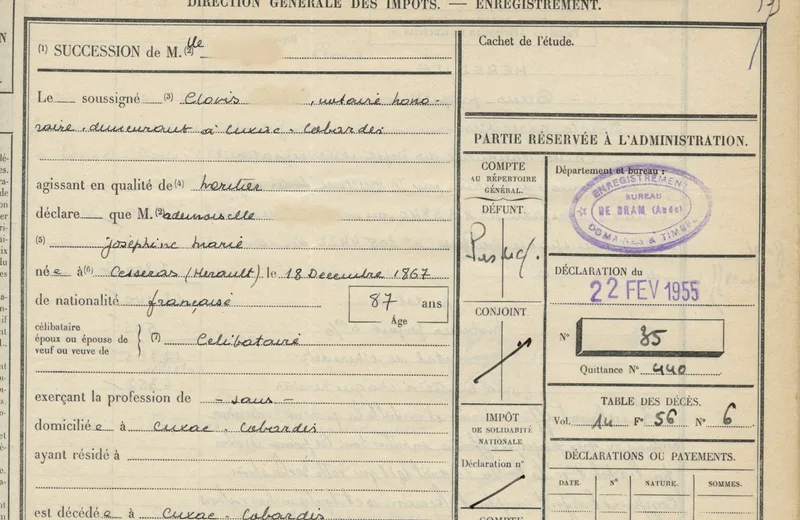 DIRECTION GÉNÉRALE DES IMPÔTS. — ENREGISTREMENT.
(1) SUCCESSION de M.(2) lle
Le soussigné (3) Clovis , notaire hono-
raire, demeurant à Cuxac-Cabardès
agissant en qualité de (4) héritier
déclare que M.(2)ademoiselle
(5) Joséphine Marie
née à (6) Cesseras (Hérault), le 18 Décembre 1867
de nationalité française 87 ans
Âge
célibataire
époux ou épouse de
veuf ou veuve de
(7) Célibataire
exerçant la profession de - sans -
domiciliée à Cuxac-Cabardès
ayant résidé à
est décédée à Cuxac-Cabardès
Cachet de l'étude.
PARTIE RÉSERVÉE À L'ADMINISTRATION.
COMPTE
AU RÉPERTOIRE
GÉNÉRAL.
DÉFUNT.
CONJOINT
IMPÔT
DE SOLIDARITÉ
NATIONALE
Déclaration n°
COMPTE
Département et bureau :
ENREGISTREMENT
BUREAU
DE BRAM (Aude)
DOMAINES & TIMBRE
DÉCLARATION du
22 FEV 1955
N° 35
Quittance N° 440
TABLE DES DÉCÈS.
Vol. 14 F° 56 N° 6
DÉCLARATIONS OU PAYEMENTS.
DATE. N° NATURE. SOMMES.